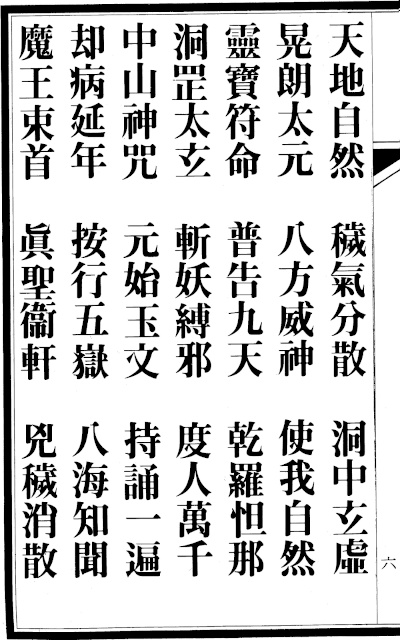 天地自然 穢氣分散 洞中玄虛
晃朗太元 八方威神 使我自然
靈寶符命 普告九天 乾羅怛那
洞罡太玄 斬妖縛邪 度人萬千
中山神咒 元始玉文 持誦一遍
却病延年 按行五嶽 八海知聞
魔王束首 眞聖衞軒 兇穢消散
六